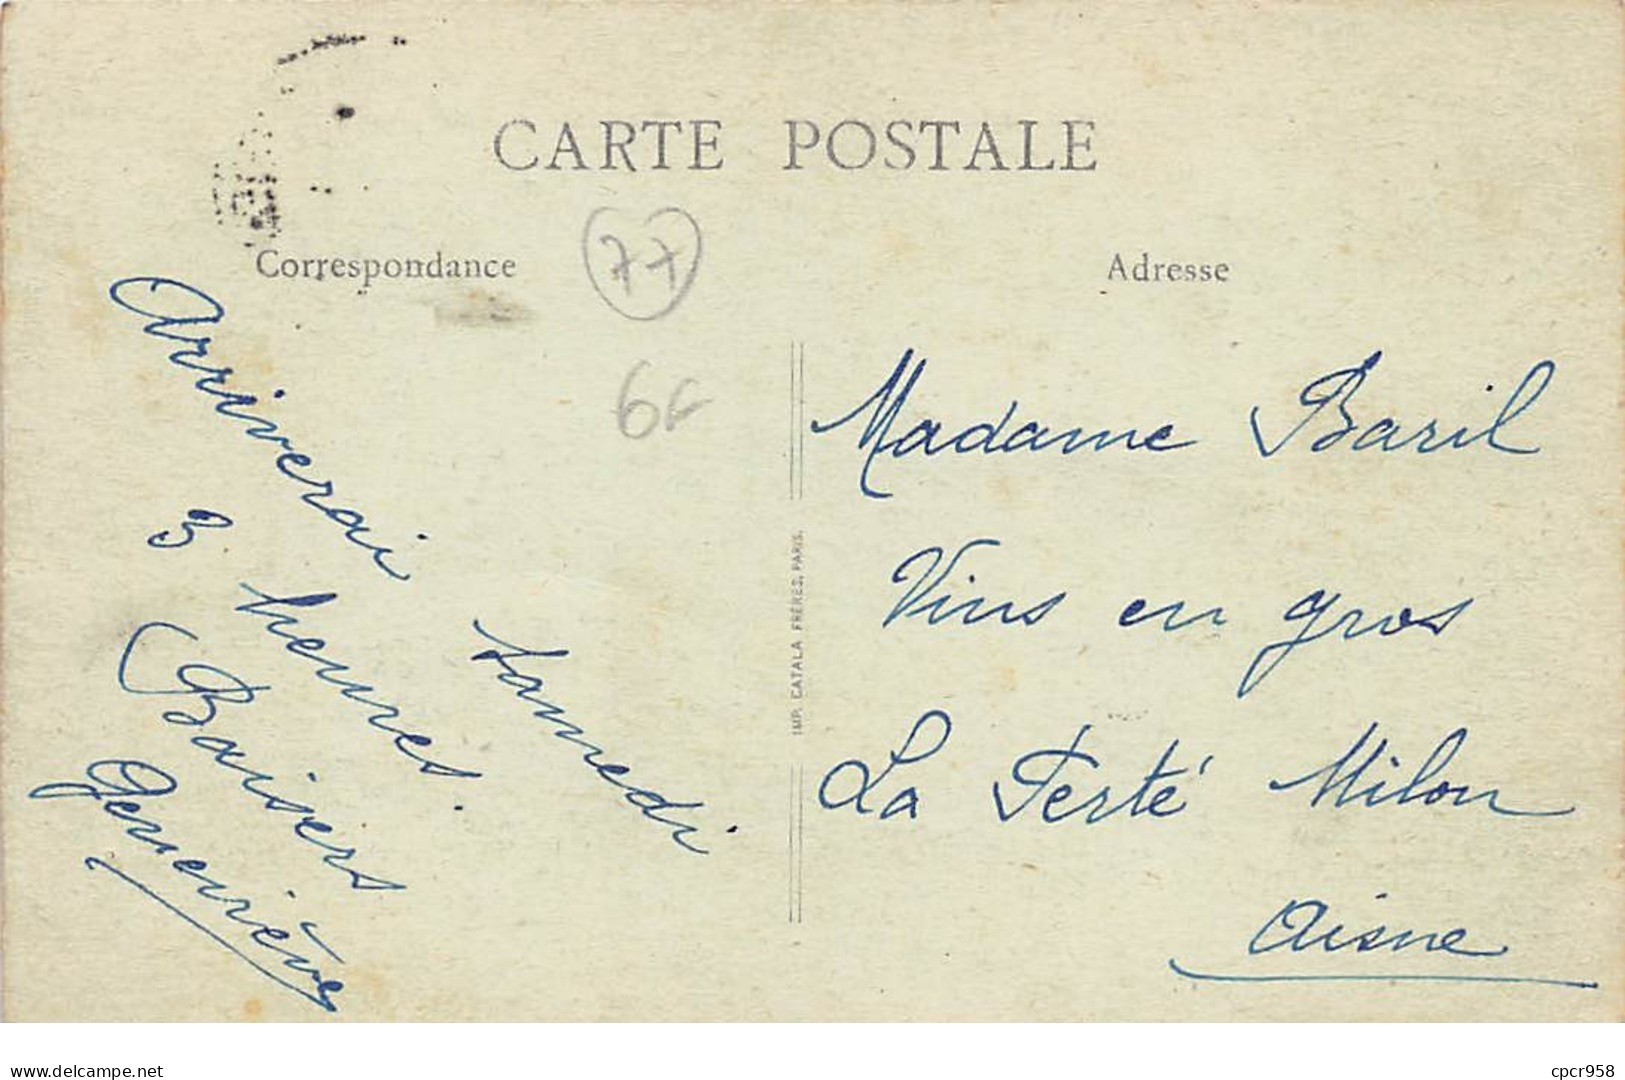 CARTE POSTALE
Correspondance
77
6F
Arriverai samedi
3 heures.
Baisers
Geneviève
IMP. CATALA FRÈRES, PARIS.
Adresse
Madame Baril
Vins en gros
La Ferté Milon
Aisne
delcampe.net
cpcr958